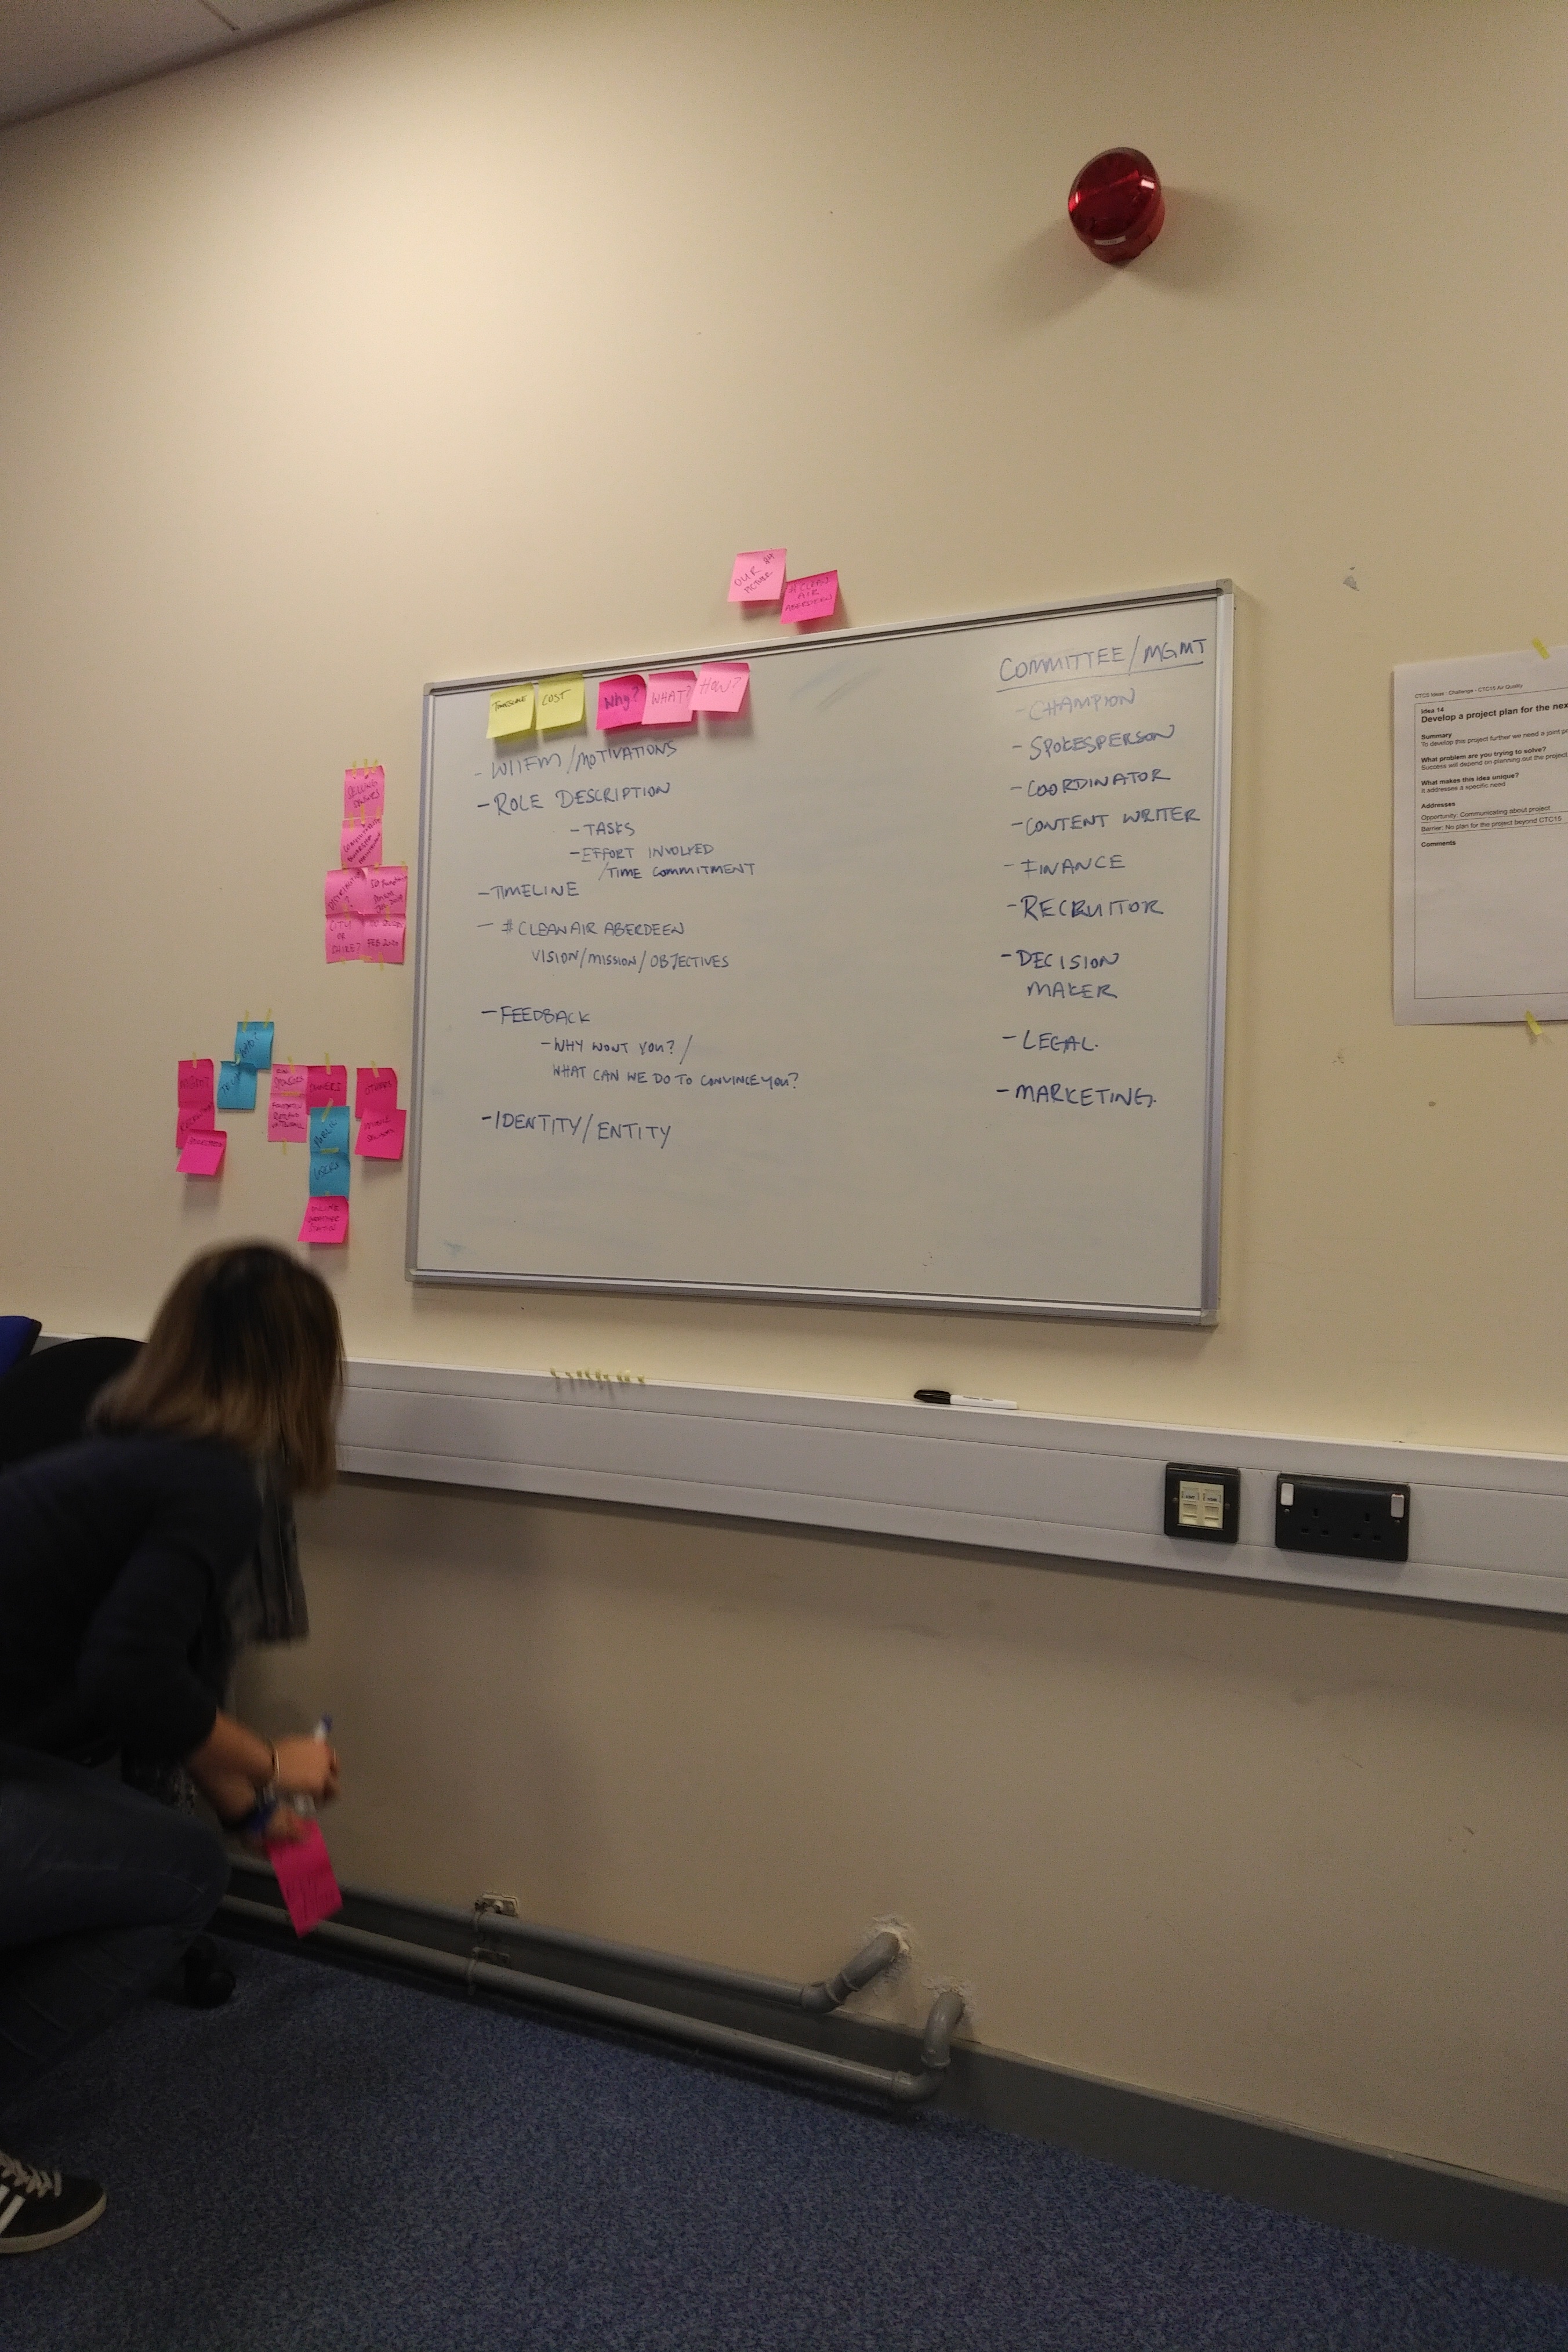 OUR
PICTURE
#CLEAN
AIR
ABERDEEN
TIMELINE
COST
Why?
WHAT?
HOW?
- WIIFM/MOTIVATIONS
- ROLE DESCRIPTION
- TASKS
- EFFORT INVOLVED
/TIME COMMITMENT
- TIMELINE
- #CLEANAIR ABERDEEN
VISION/MISSION/OBJECTIVES
- FEEDBACK
- WHY WONT YOU? /
WHAT CAN WE DO TO CONVINCE YOU?
- IDENTITY/ENTITY
COMMITTEE/MGMT
- CHAMPION
- SPOKESPERSON
- COORDINATOR
- CONTENT WRITER
- FINANCE
- RECRUITOR
- DECISION
MAKER
- LEGAL.
- MARKETING.
CITY
OR
SHIRE?
FEB 2020
MGMT
TECH
PUBLIC
USERS
OTHERS
CTC5 Ideas - Challenge - CTC15 Air Quality
Idea 14
Develop a project plan for the nex
Summary
To develop this project further we need a joint pr
What problem are you trying to solve?
Success will depend on planning out the project
What makes this idea unique?
It addresses a specific need
Addresses
Opportunity: Communicating about project
Barrier: No plan for the project beyond CTC15
Comments